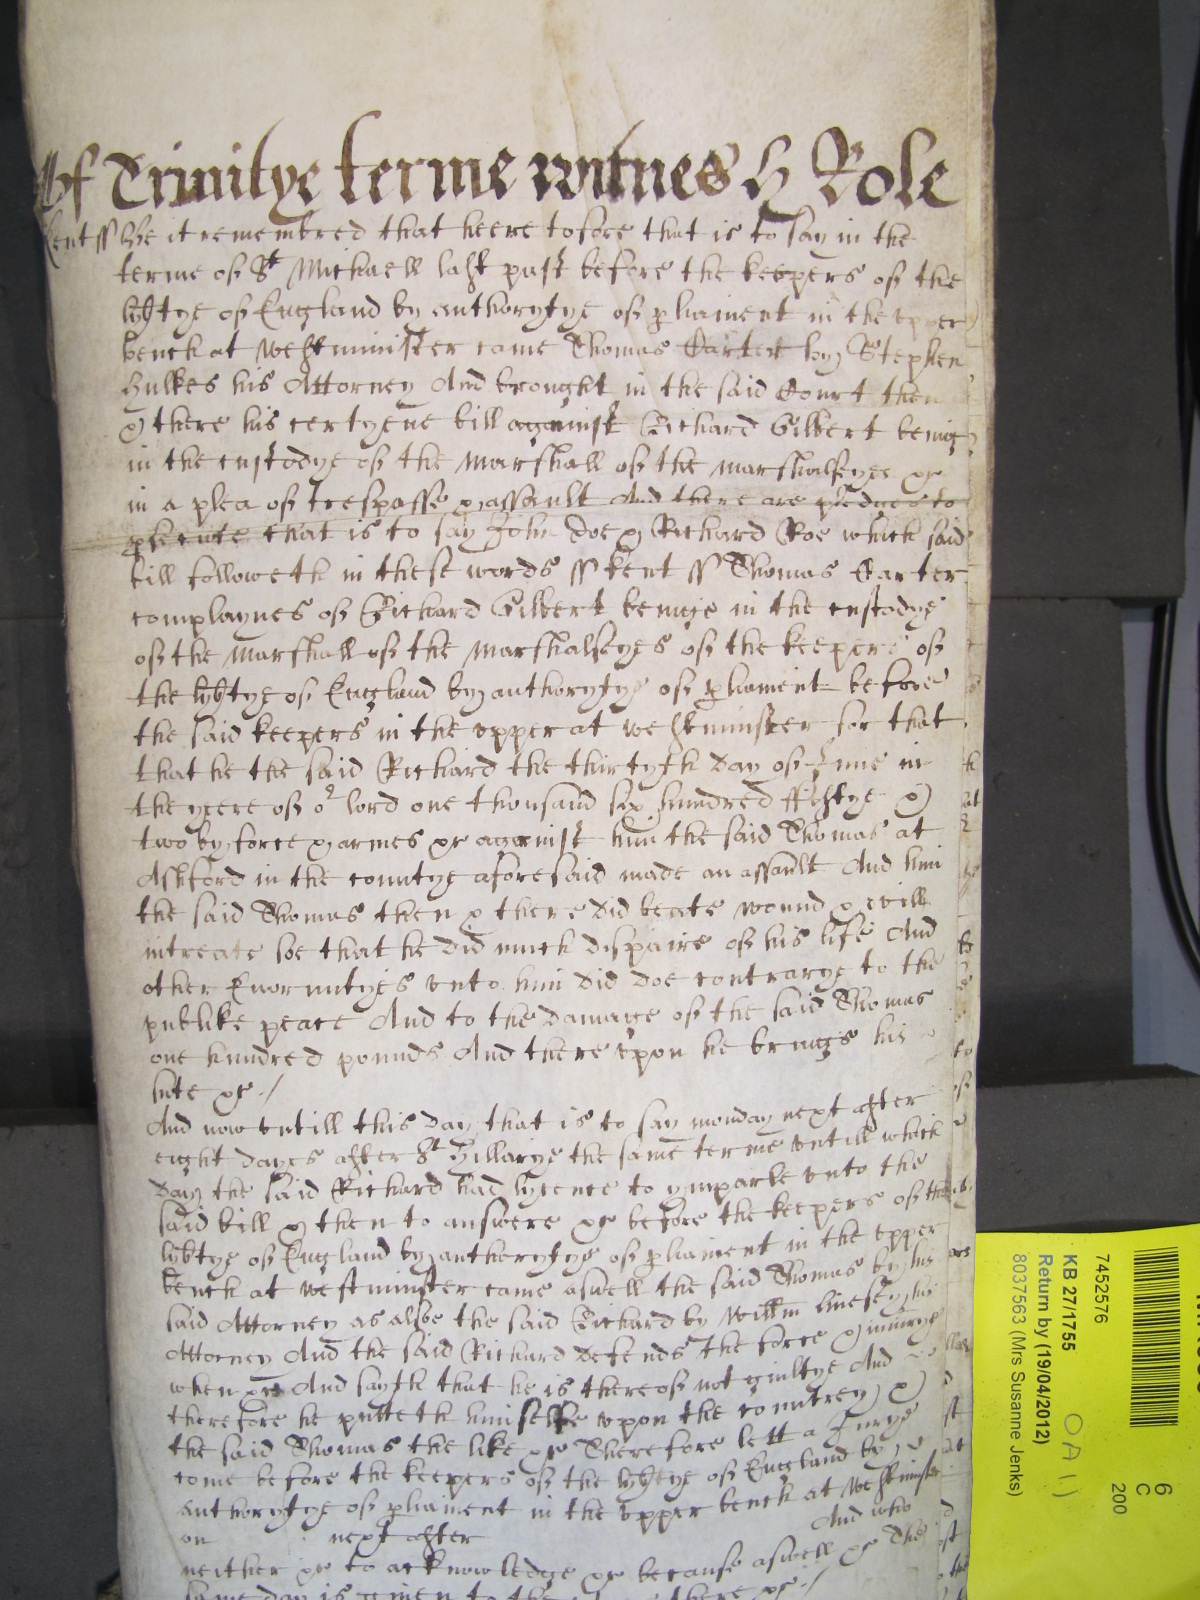 Of Trinitye terme witnes H Role
Kent ss Be it remembred that heeretofore that is to say in the
terme of St Michaell last past before the keepers of the
lybtye of England by authorytye of pliament in the upper
bench at westminster came Thomas Carter by Stephen
Hulkes his Attorney And brought in the said Court then
& there his certyene bill against Richard Gilbert being
in the custodye of the Marshall of the Marshalseyes &c
in a plea of trespasse & assault And there are pledges to
psecute that is to say John Doe & Richard Roe which said
bill followeth in these words ss kent ss Thomas Carter
complaynes of Richard Gilbert beinge in the custodye
of the Marshall of the Marshalseyes of the keepers of
the lybtye of England by authorytye of pliament before
the said keepers in the upper at westminster for that
that he the said Richard the thirtyth day of June in
the yeere of or lord one thousand six hundred ffiftye &
two by force & armes &c against him the said Thomas at
Ashford in the countye aforesaid made an assault And him
the said Thomas then & there did beate wound & evill
intreate soe that he did much dispaire of his life And
other Enormityes unto him did doe contrarye to the
publike peace And to the damage of the said Thomas
one hundred pounds And there upon he brings his
sute &c /
And now untill this day that is to say monday next after
eight dayes after St Hillarye the same terme untill which
day the said Richard had lycence to ymparle unto the
said bill & then to answere &c before the keepers of the
lybtye of England by authorytye of pliament in the upper
bench at westminster came aswell the said Thomas by his
said Attorney as alsoe the said Richard by Willm Linesey his
Attorney And the said Richard defends the force & iniurye
when &c And sayth that he is thereof not guiltye And
therefore he putteth himselfe upon the countrey &
the said Thomas the like &c Therefore lett a Jurye
come before the keepers of the lybtye of England by
authorytye of pliament in the upper bench at westminster
on next after And who
neither &c to acknowledge &c because aswell &c The
same day is given to the there &c /
7452576
KB 27/1755
Return by (19/04/2012)
8037563 (Mrs Susanne Jenks)
6
C
200